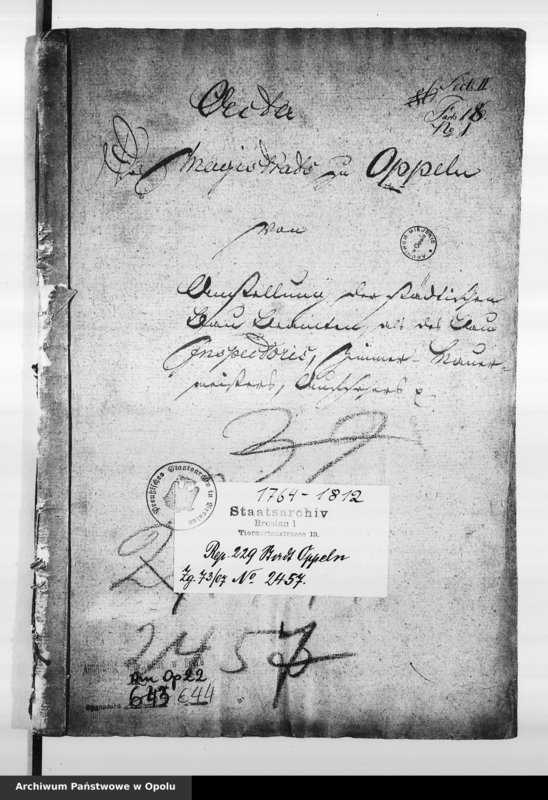 Sect. II
Fach 18
No 1
Acta
Des Magistrats zu Oppeln
von
Anstellung der städtischen
Bau Beamten, als des Bau
Inspectoris, Zimmer- Mauer-
meisters,
ARCHIWUM MIEJSKIE
Preußisches Staatsarchiv in Breslau
1764-1812
Staatsarchiv
Breslau 1
Tiergartenstrasse 13.
Rep. 229 Stadt Oppeln
Zg. 73/07 No 2457.
2457
Am Op 22
643 644
Sygnatura
Archiwum Państwowe w Opolu